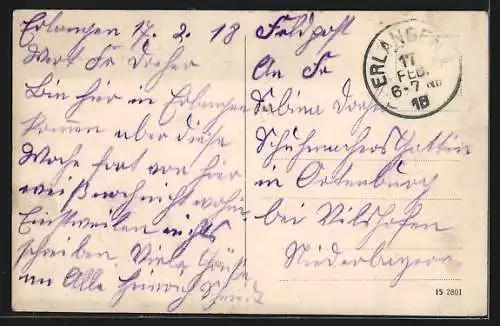 Erlangen 17. 2. 18
Wert Fr Dorher
Bin hier in Erlangen
kommen aber diese
Woche fort von hier
weiß noch nicht wohin
Einstweilen nichts
schreiben, Viele Grüße
an Alle Heinrich Schmidt
Feldpost
An Fr
Sabina
Schuhmachers Gattin
in Ortenburg
bei Vilshofen
Niederbayern
ERLANGEN
17
FEB.
6-7 NM
18
15 2801